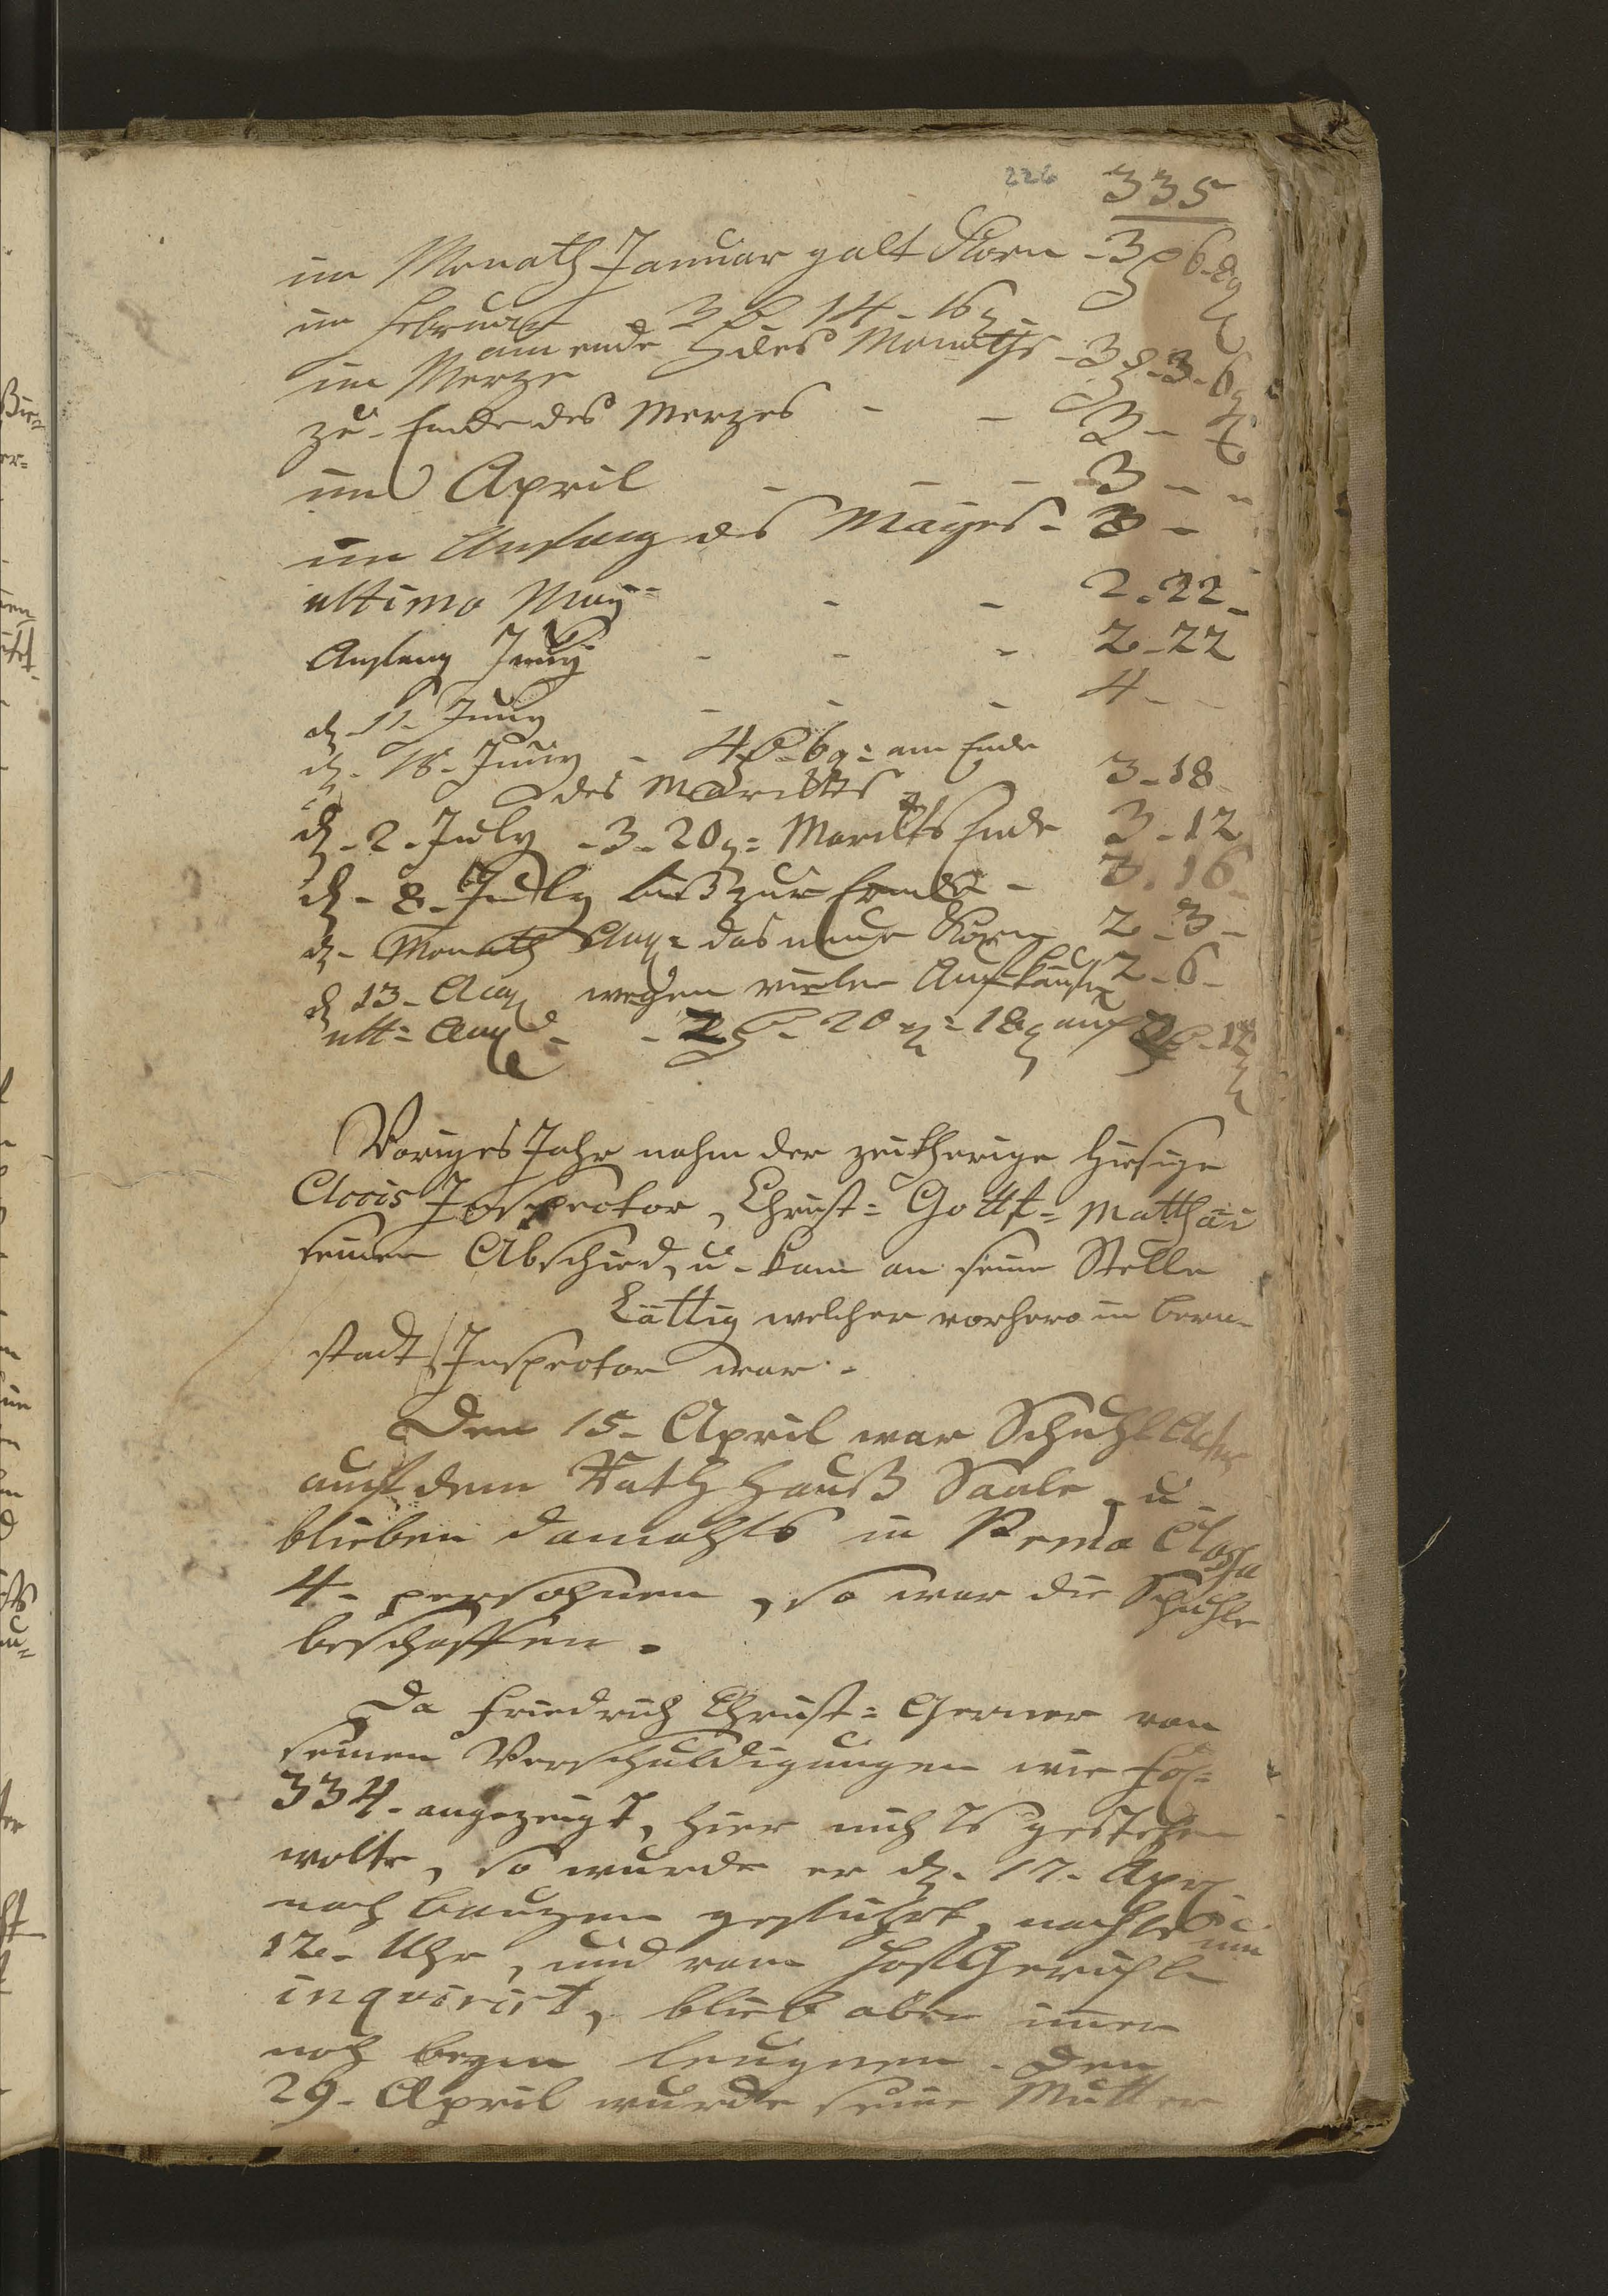 226 335
im Monath Januar galt Korn - 3 6
im Februar 3 14 - 16
am ende des Monaths - 3 - 3 - 6
im Merze
zu Ende des Merzes - - 3 -
im April - - - 3 - -
im Anfang des Mayes - 3 -
ultimo May - - 2 - 22 -
Anfang Juny - - - 2 - 22
d. 11. Juny - - - 4 - -
d. 18. Juny - 4 - 6 g = am Ende
des Marcktes 3 - 18
d. 2. July - 3 - 20 g = Marckts Ende 3 - 12
d. 8. July biß zur Ernde - 3 - 16 -
d. Monath Aug = das neue Korn 2 - 3 -
d. 13. Aug wegen vieler Aufkäufer 2 - 6 -
ult = Aug - - 2 - 20 = 18 auch 2 - 12
Voriges Jahr nahm der zeitherige hiesige
Accis Inspector, Christ = Gottf = Matthäi
seinen Abschied, u. kam an seine Stelle
Lättig welcher vorhero in Bern-
stadt Inspector war.
Den 15. April war Schuhl Actus
auf dem Rath Hauß Saale, u.
blieben damahls in Prima Classa
4. persohnen, so war die Schuhle
beschaffen.
Da Friedrich Christ = Gerner von
seinen Verschuldigungen wie fol =
334. angezeigt, hier nichts gestehen
wolte, so wurde er d. 17. Apr
nach Bauzen geführt, nachts um
12. Uhr, und vom Hoff Gerichte
inqvirirt, blieb aber imer
noch beym leugnen. Den
29. April wurde seine Mutter